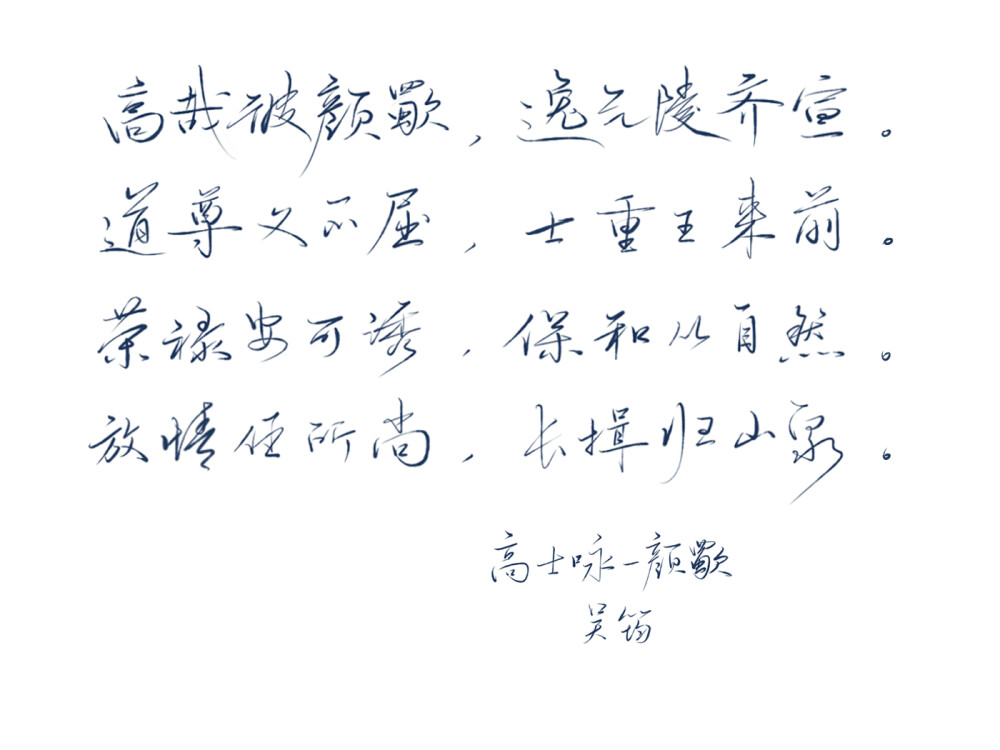 高哉彼颜歜，逸气陵齐宣。
道尊义不屈，士重王来前。
荣禄安可诱，保和从自然。
放情任所尚，长揖归山泉。
高士咏－颜歜
吴筠